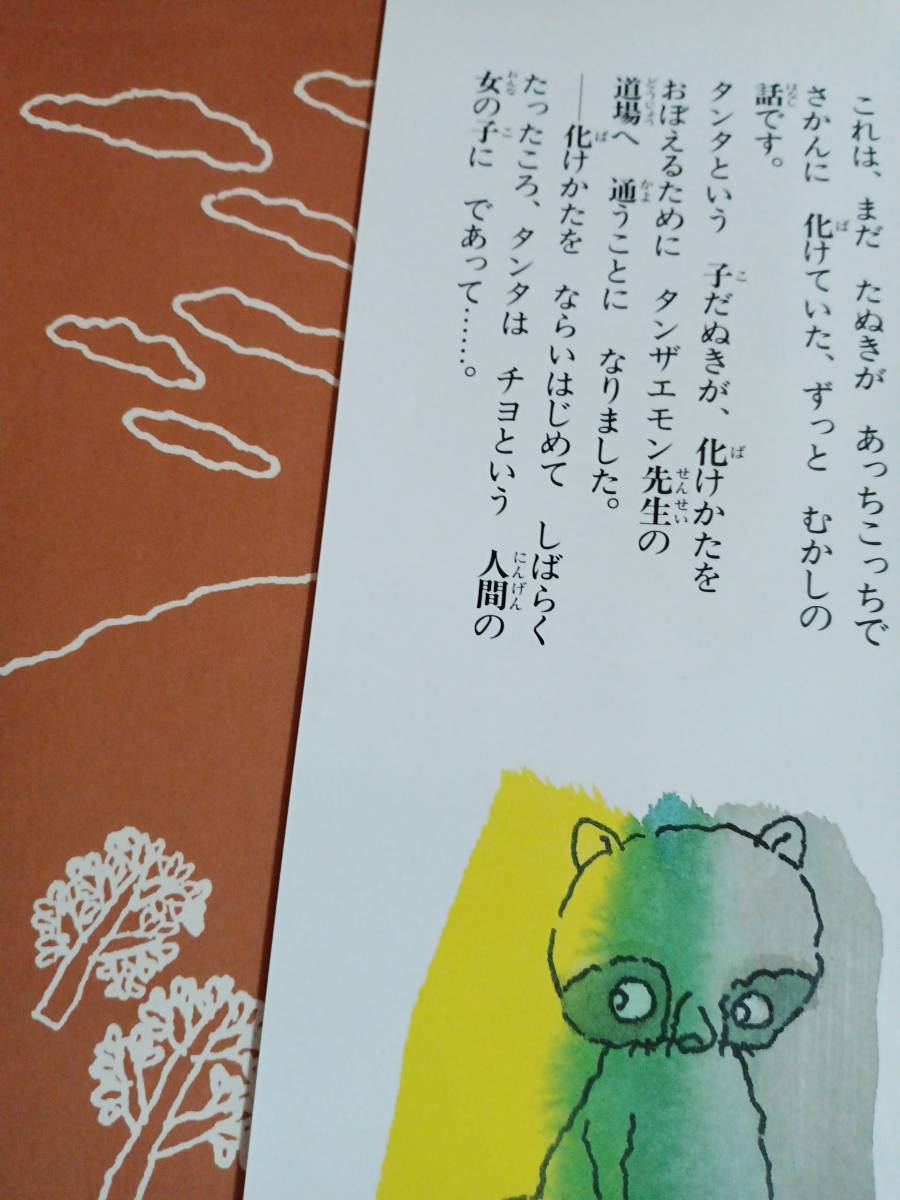 これは、まだ たぬきが あっちこっちで
さかんに 化けていた、ずっと むかしの
話です。
タンタという 子だぬきが、化けかたを
おぼえるために タンザエモン先生の
道場へ 通うことに なりました。
――化けかたを ならいはじめて しばらく
たったころ、タンタは チヨという 人間の
女の子に であって……。